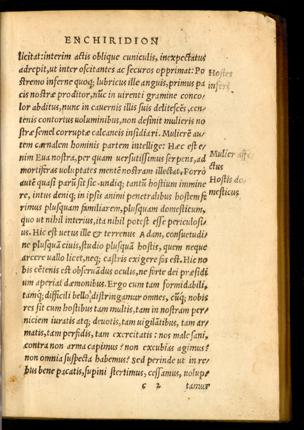 ENCHIRIDION
licitat: interim actis oblique cuniculis, inexpectatus
adrepit, ut inter oscitantes ac securos opprimat: Po
stremo inferne quoq; lubricus ille anguis, primus pa
cis nostræ proditor, nũc in uirenti gramine conco/
lor abditus, nunc in cauernis illis suis delitescẽs, cen/
tenis contortus uoluminibus, non desinit mulieris no
stræ semel corruptæ calcaneis insidiari. Mulierẽ au/
tem carnalem hominis partem intellige: Hæc est e/
nim Eua nostra, per quam uersutissimus serpens, ad
mortiferas uoluptates mentẽ nostram illectat. Porro
autẽ quasi parũ sit sic undiq; tantũ hostium immine
re, intus deniq; in ipsis animi penetralibus hostem fe
rimus plusquam familiarem, plusquam domesticum,
quo ut nihil interius, ita nihil potest esse periculosi/
us. Hic est uetus ille & terrenus Adam, consuetudi/
ne plusquã ciuis, studio plusquã hostis, quem neque
arcere uallo licet, neq; castris exigere fas est. Hic no
bis cẽtenis est obseruãdus oculis, ne forte dei præsidi
um aperiat dæmonibus. Ergo cum tam formidabili,
tamq; difficili bello, distringamur omnes, cũq; nobis
res sit cum hostibus tam multis, tam in nostram per/
niciem iuratis atq; deuotis, tam uigilãtibus, tam ar/
matis, tam perfidis, tam exercitatis: nos male sani,
contra non arma capimus? non excubias agimus?
non omnia suspecta habemus? Sed perinde ut in re/
bus bene pacatis, supini stertimus, cessamus, uolupe
c 2 tamur
Hostes
inferi
Mulier affe
ctus
Hostis do/
mesticus